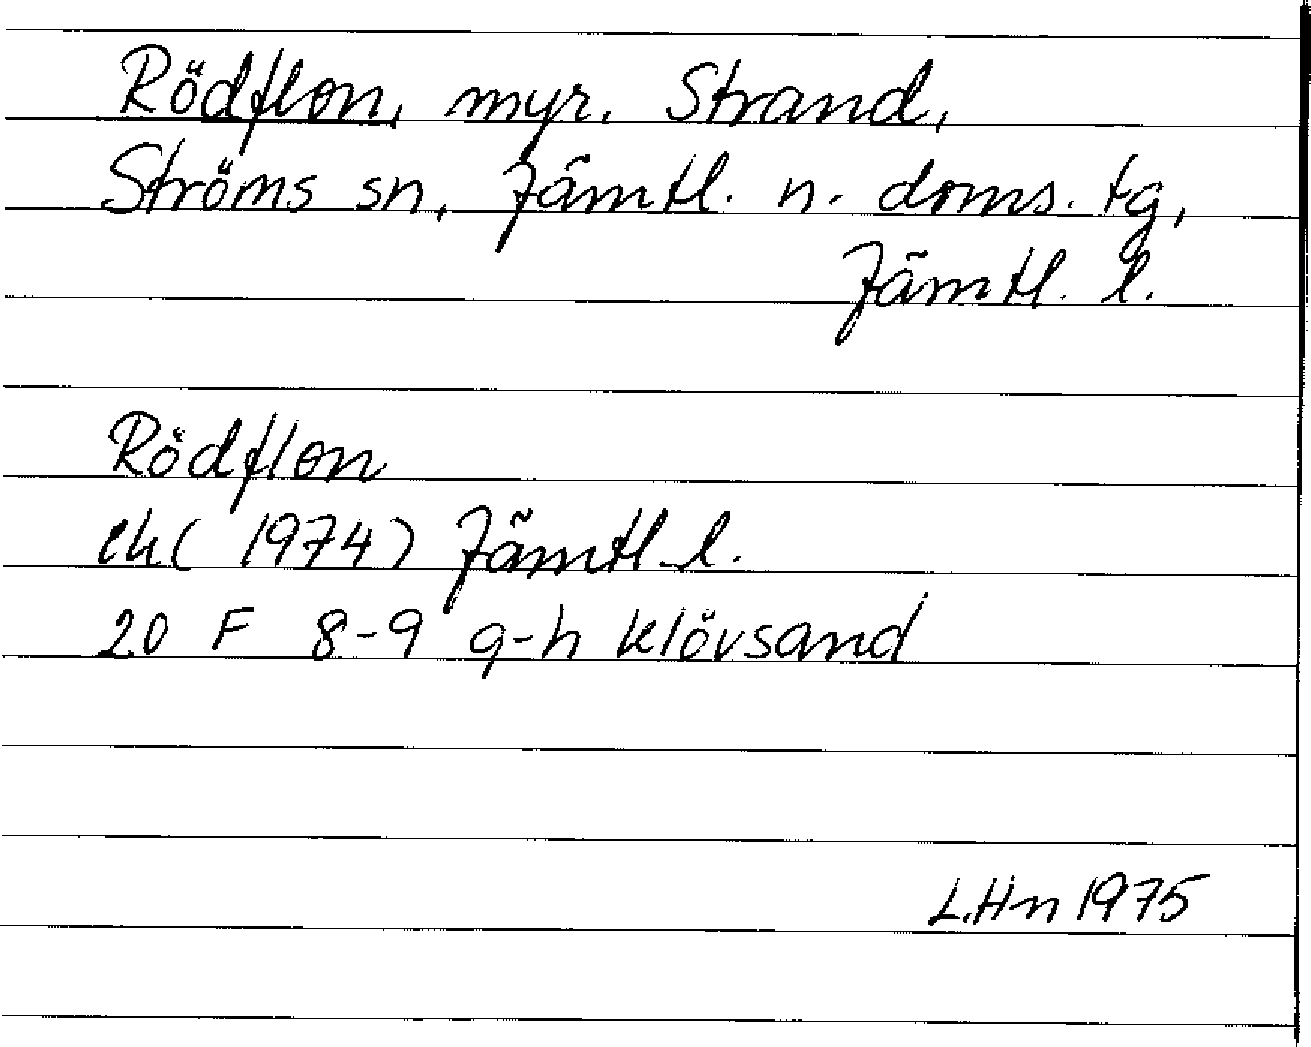 Rödflon, myr. Strand,
Ströms sn, Jämtl. n. doms. tg,
Jämtl. l.
Rödflon
ek (1974) Jämtl. l.
20 F 8-9 g-h Klövsand
L.Hn 1975